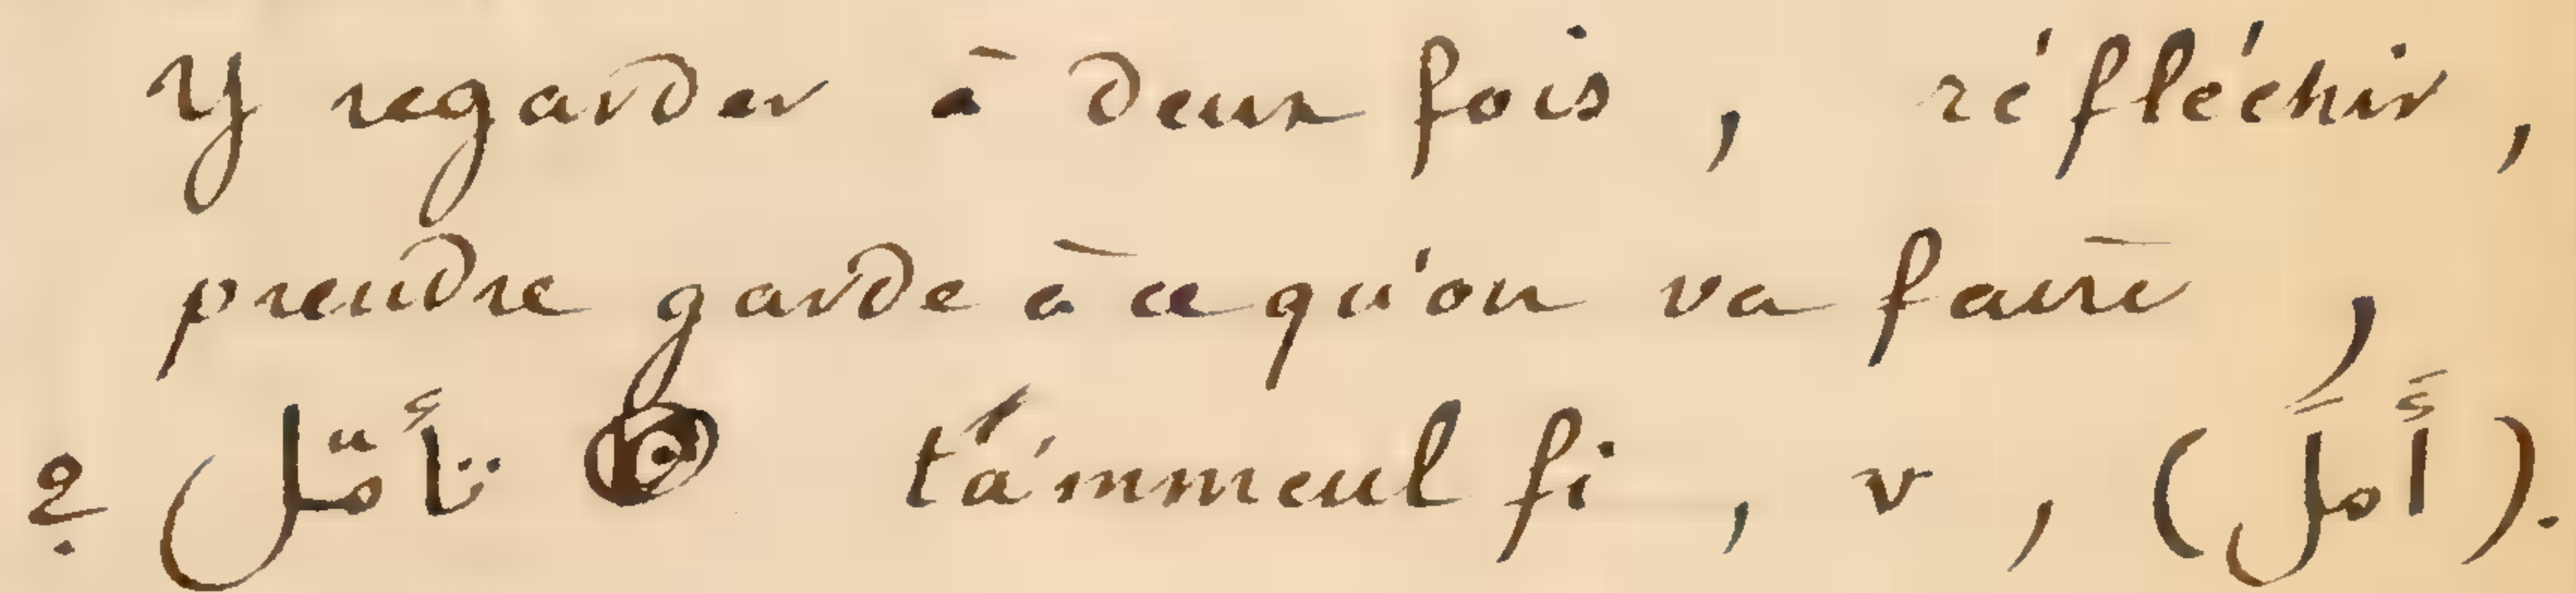 Y regarder à deux fois, réfléchir,
prendre garde à ce qu'on va faire,
تأمّل في ta'mmeul fi, v, (أَملَ).